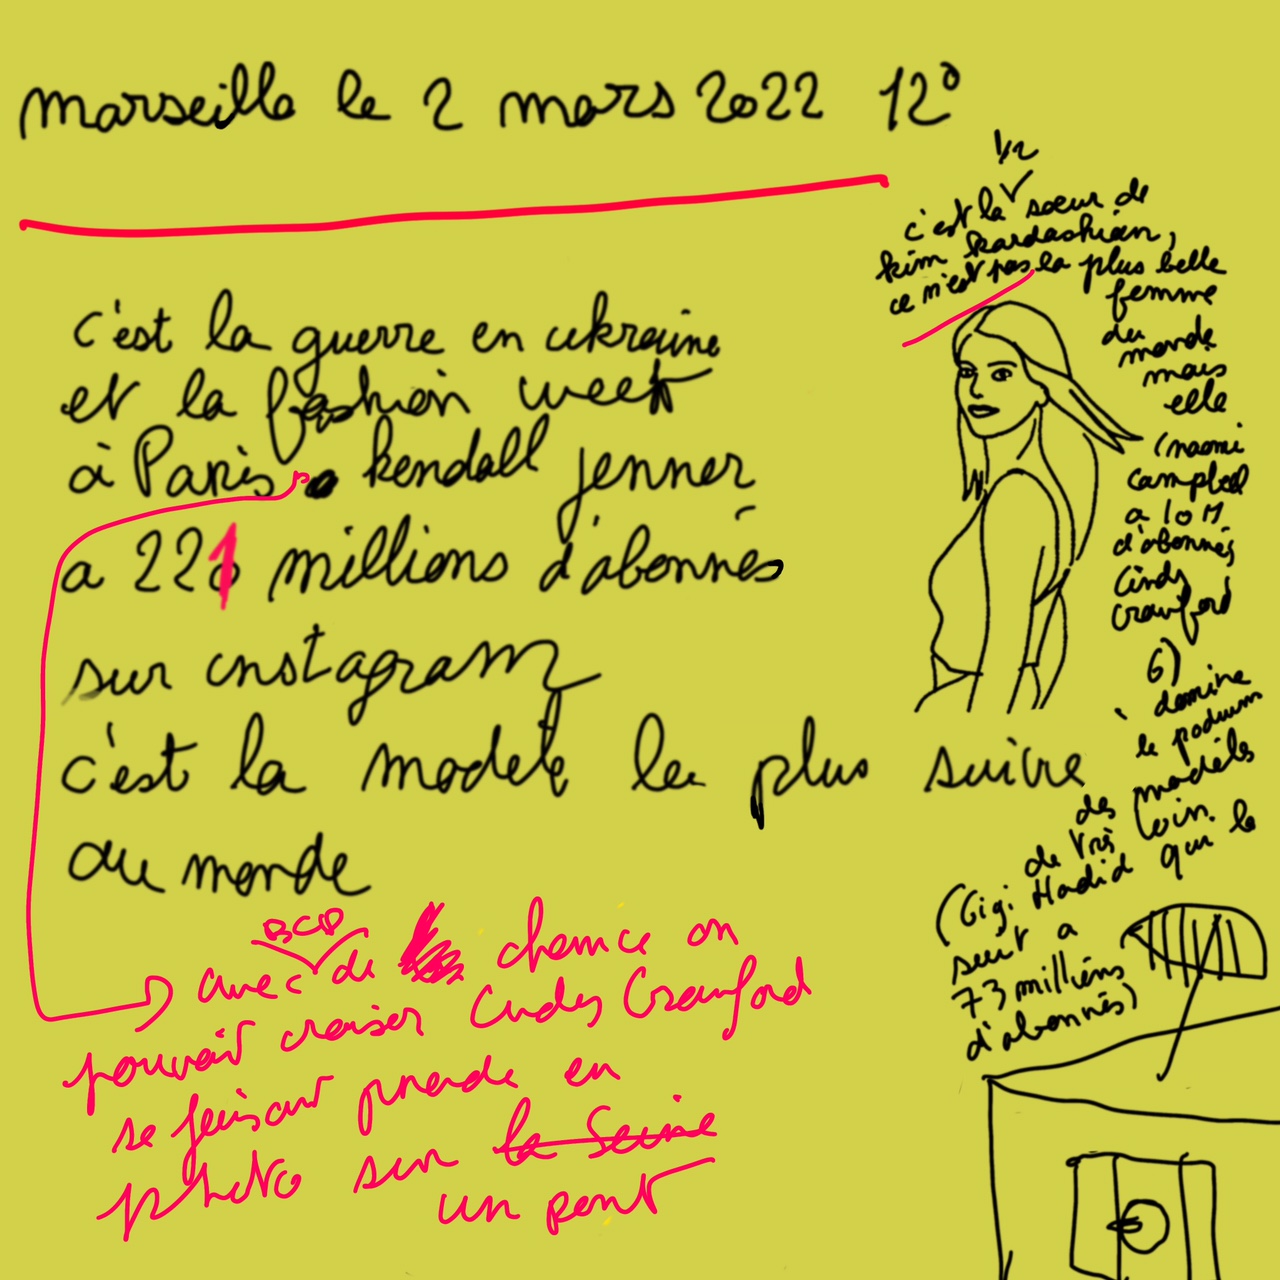 marseille le 2 mars 2022 12°
1/2
c'est la soeur de
kim kardashian,
ce n'est pas la plus belle
femme
du
monde
mais
elle
(naomi
Campbell
a 10 M
d'abonnés
Cindy
Crawford
6)
domine
le podium
des modèls
de très loin.
(Gigi Hadid qui la
suit a
73 millions
d'abonnés)
c'est la guerre en ukraine
et la fashion week
à Paris. kendall jenner
a 221 millions d'abonnés
sur instagram
c'est la modèle la plus suivie
du monde
BCP
avec de chance on
pouvait croiser Cindy Crawford
se faisant prendre en
photo sur la Seine
un pont